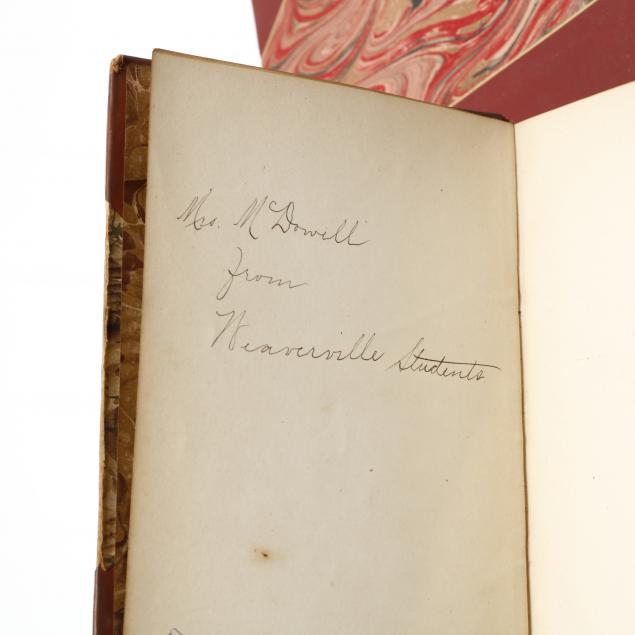 Mrs. McDowell
from
Weaverville Students